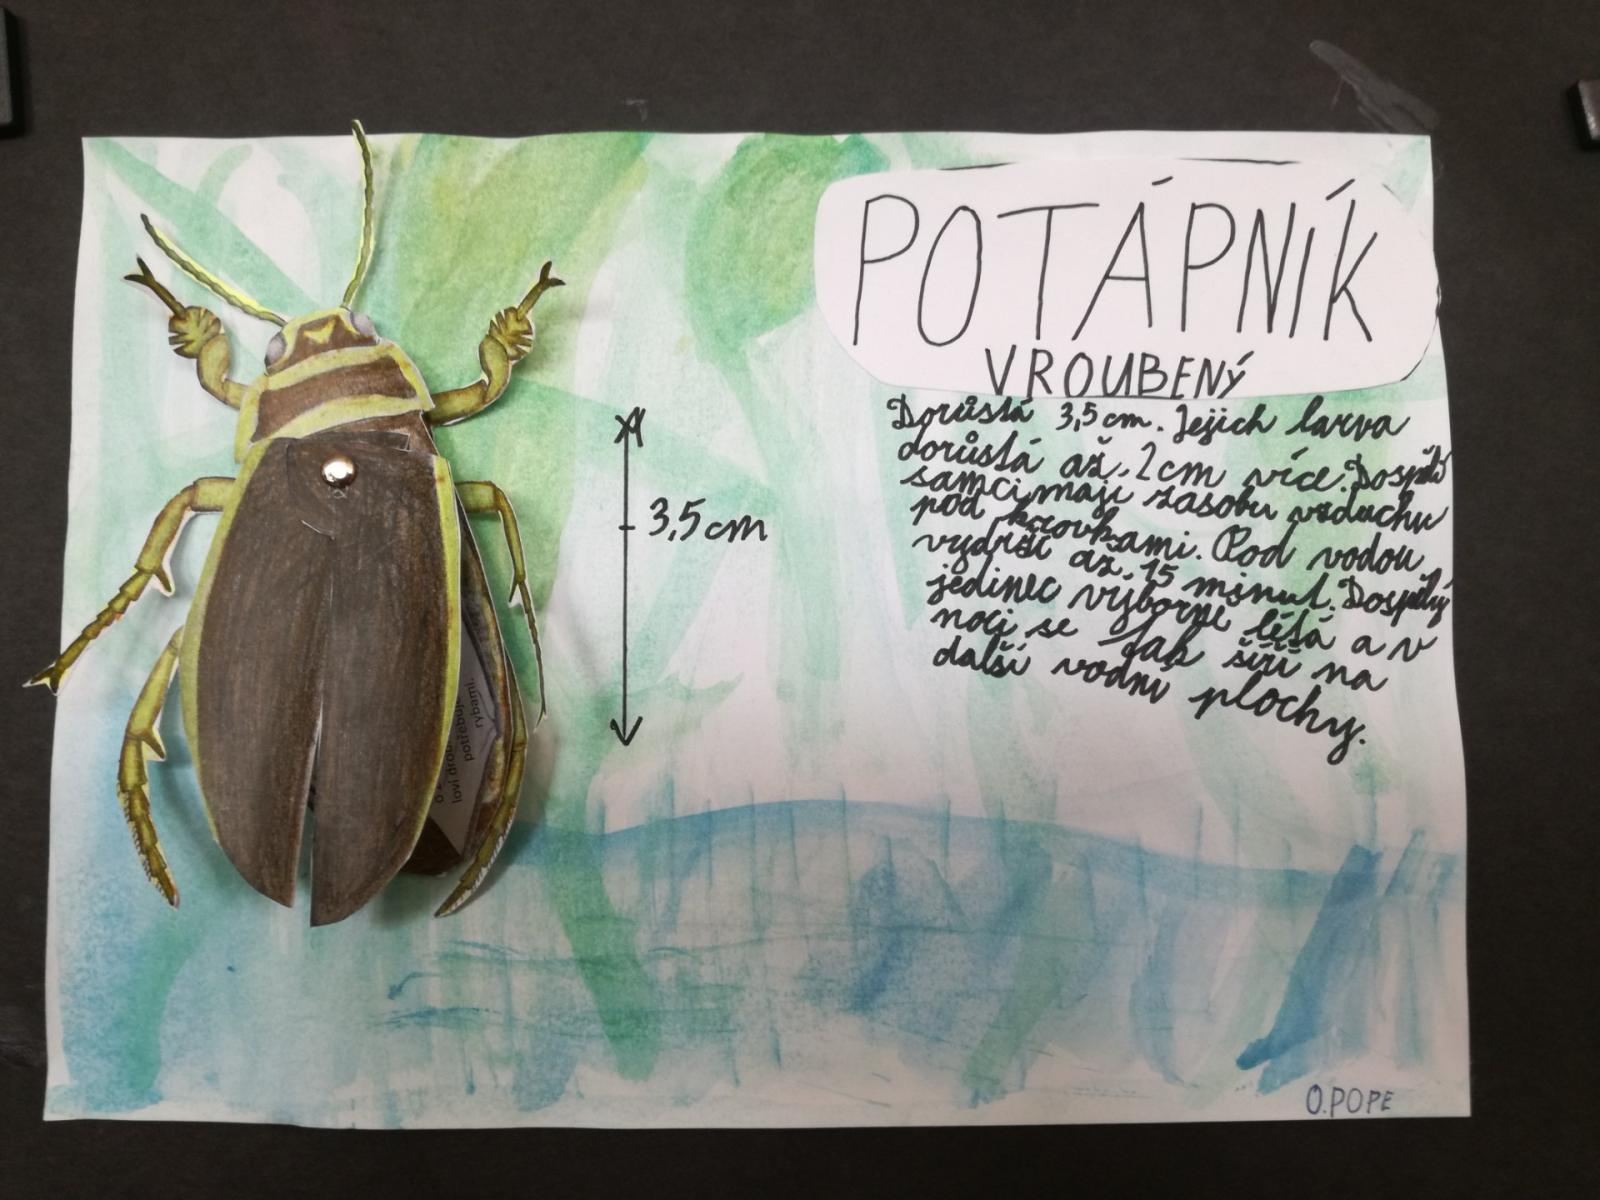 POTÁPNÍK
VROUBENÝ
Dorůstá 3,5 cm. Jejich larva
dorůstá až 2 cm více. Dospělí
samci mají zásobu vzduchu
pod krovkami. Pod vodou
vydrží až 15 minut. Dospělý
jedinec výborně létá a v
noci se tak šíří na
další vodní plochy.
3,5 cm
loví drob
potřebuj
rybami.
O.POPE